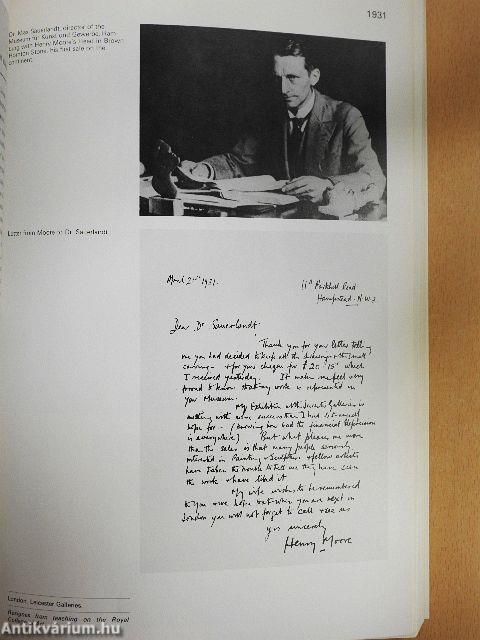 1931
Dr. Max Sauerlandt, director of the
Museum für Kunst und Gewerbe, Ham-
burg with Henry Moore's Head in Brown
Hornton Stone, his first sale on the
continent.
Letter from Moore to Dr. Sauerlandt.
1931.
11A Parkhill Road
Hampstead. N.W.3.
Dear Dr Sauerlandt,
Thank you for your letter telling
me you had decided to keep all the drawings & the small
carving - & for your cheque for £20-15 which
I received yesterday. It makes me feel very
proud to know that my work is represented in
your Museum.
My Exhibition at the Leicester Galleries is
meeting with more success than I had
hope for - (knowing how bad the financial depression
is everywhere) But what pleases me more
than the sales is that many people seriously
interested in Painting & Sculpture & fellow artists
have taken the trouble to tell me they have seen
the work & have liked it
My wife wishes to be remembered
to you & we hope that when you are next in
London you will not forget to call & see us
yrs sincerely
Henry Moore
London, Leicester Galleries.
Resigns from teaching on the Royal
College
Antikvárium.hu